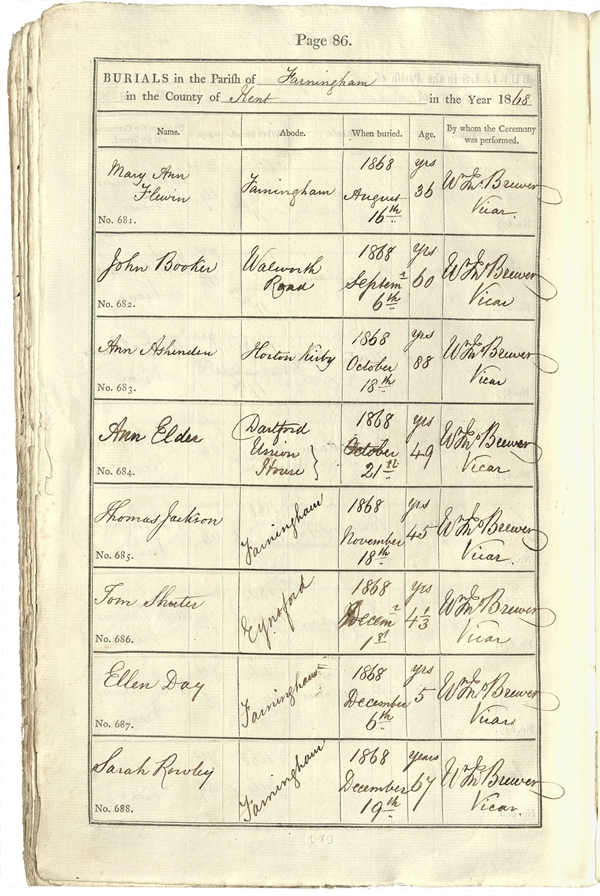 Page 86.
BURIALS in the Parish of Farningham
in the County of Kent in the Year 1868
Name. Abode. When buried. Age. By whom the Ceremony was performed.
Mary Ann Flewin Farningham 1868 August 16th yrs 36 Wm Fr Brewer Vicar.
No. 681.
John Booker Walworth Road 1868 Septemr 6th yrs 60 Wm Fr Brewer Vicar
No. 682.
Ann Ashenden Horton Kirby 1868 October 18th yrs 88 Wm Fr Brewer Vicar
No. 683.
Ann Elder Dartford Union House } 1868 October 21st yrs 49 Wm Fr Brewer Vicar
No. 684.
Thomas Jackson Farningham 1868 November 18th yrs 45 Wm Fr Brewer Vicar.
No. 685.
Tom Shorter Eynsford 1868 Decemr 1st yrs Wm Fr Brewer Vicar
No. 686.
Ellen Day Farningham 1868 December 6th yrs 5 Wm Fr Brewer Vicar
No. 687.
Sarah Rowley Farningham 1868 December 19th years 67 Wm Fr Brewer Vicar
No. 688.